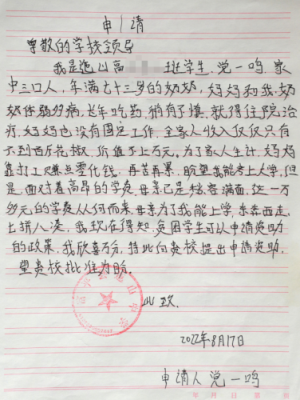 申请
尊敬的学校领导
我是延川高 班学生，党一鸣 家
中三口人，年满七十三岁的奶奶，妈妈和我，奶
奶体弱多病，长年吃药，稍有不慎，就得住院治
疗，妈妈也没有固定工作，全家人收入仅仅只有
不到四万花椒，价值不上万元。为了家人生计，妈妈
靠打工赚点零化钱，再苦再累，盼望我能考上大学，但
是面对着高昂的学费母亲已是愁容满面，这一万
多元的学费从何而来，母亲为了我能上学东奔西走，
上请人凑，我现在得知，贫困学生可以申请资助
的政策，我欣喜万分，特此向贵校提出申请资助，
望贵校批准为盼。
此致
2022年8月17日
申请人 党一鸣